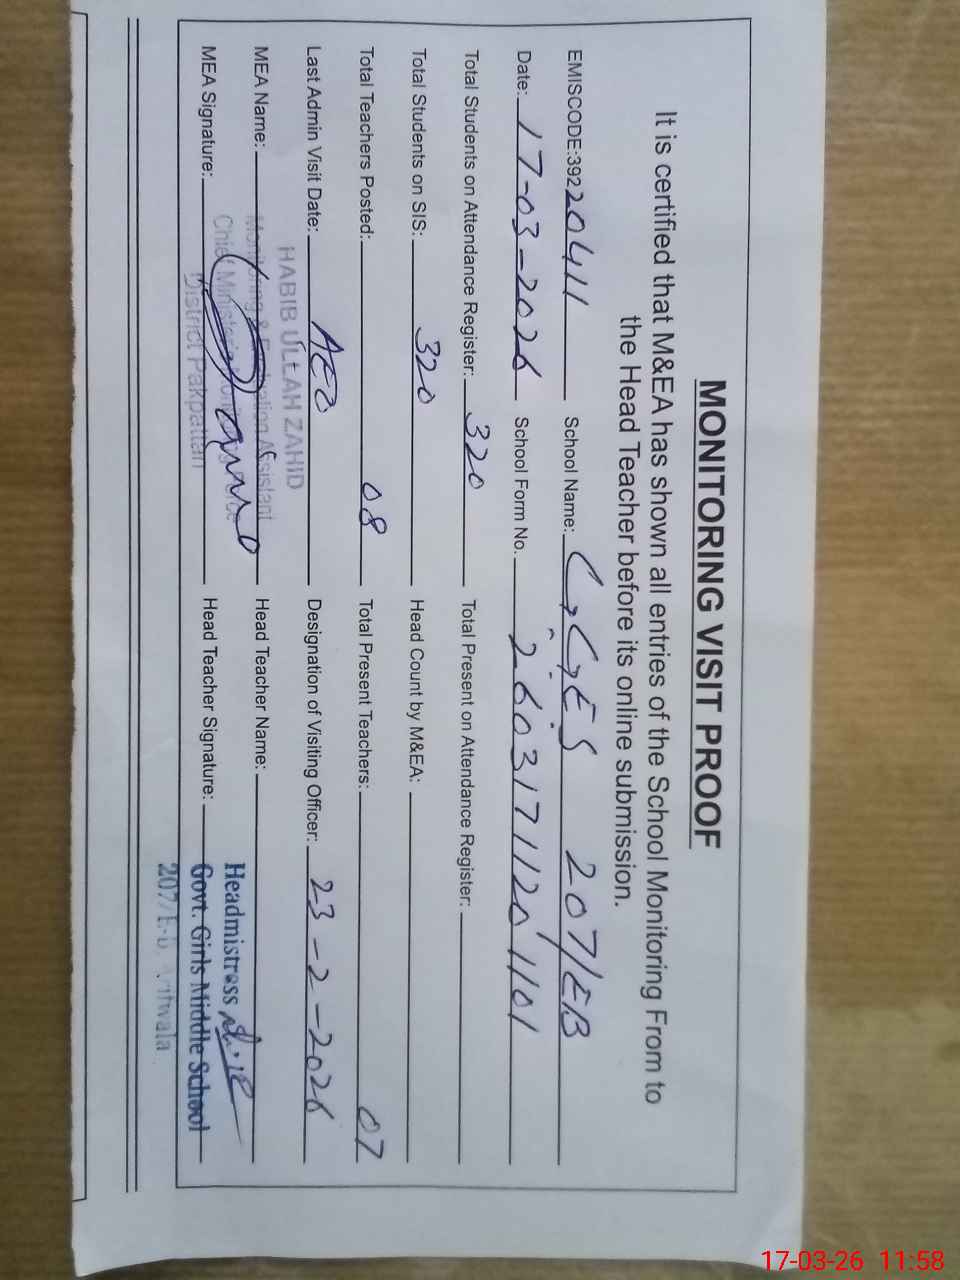 MONITORING VISIT PROOF
It is certified that M&EA has shown all entries of the School Monitoring From to
the Head Teacher before its online submission.
EMISCODE:39220411 School Name: GGES 207/EB
Date: 17-03-2026 School Form No. 26031711201101
Total Students on Attendance Register: 320 Total Present on Attendance Register:
Total Students on SIS: 320 Head Count by M&EA:
Total Teachers Posted: 08 Total Present Teachers: 07
Last Admin Visit Date: AEO Designation of Visiting Officer: 23-2-2026
HABIB ULLAH ZAHID
MEA Name: Head Teacher Name:
Monitoring & Evaluation Assistant
Headmistress
MEA Signature: Head Teacher Signature:
Chief Minister's Monitoring Force
Govt. Girls Middle School
District Pakpattan
207/E-B.
17-03-26 11:58